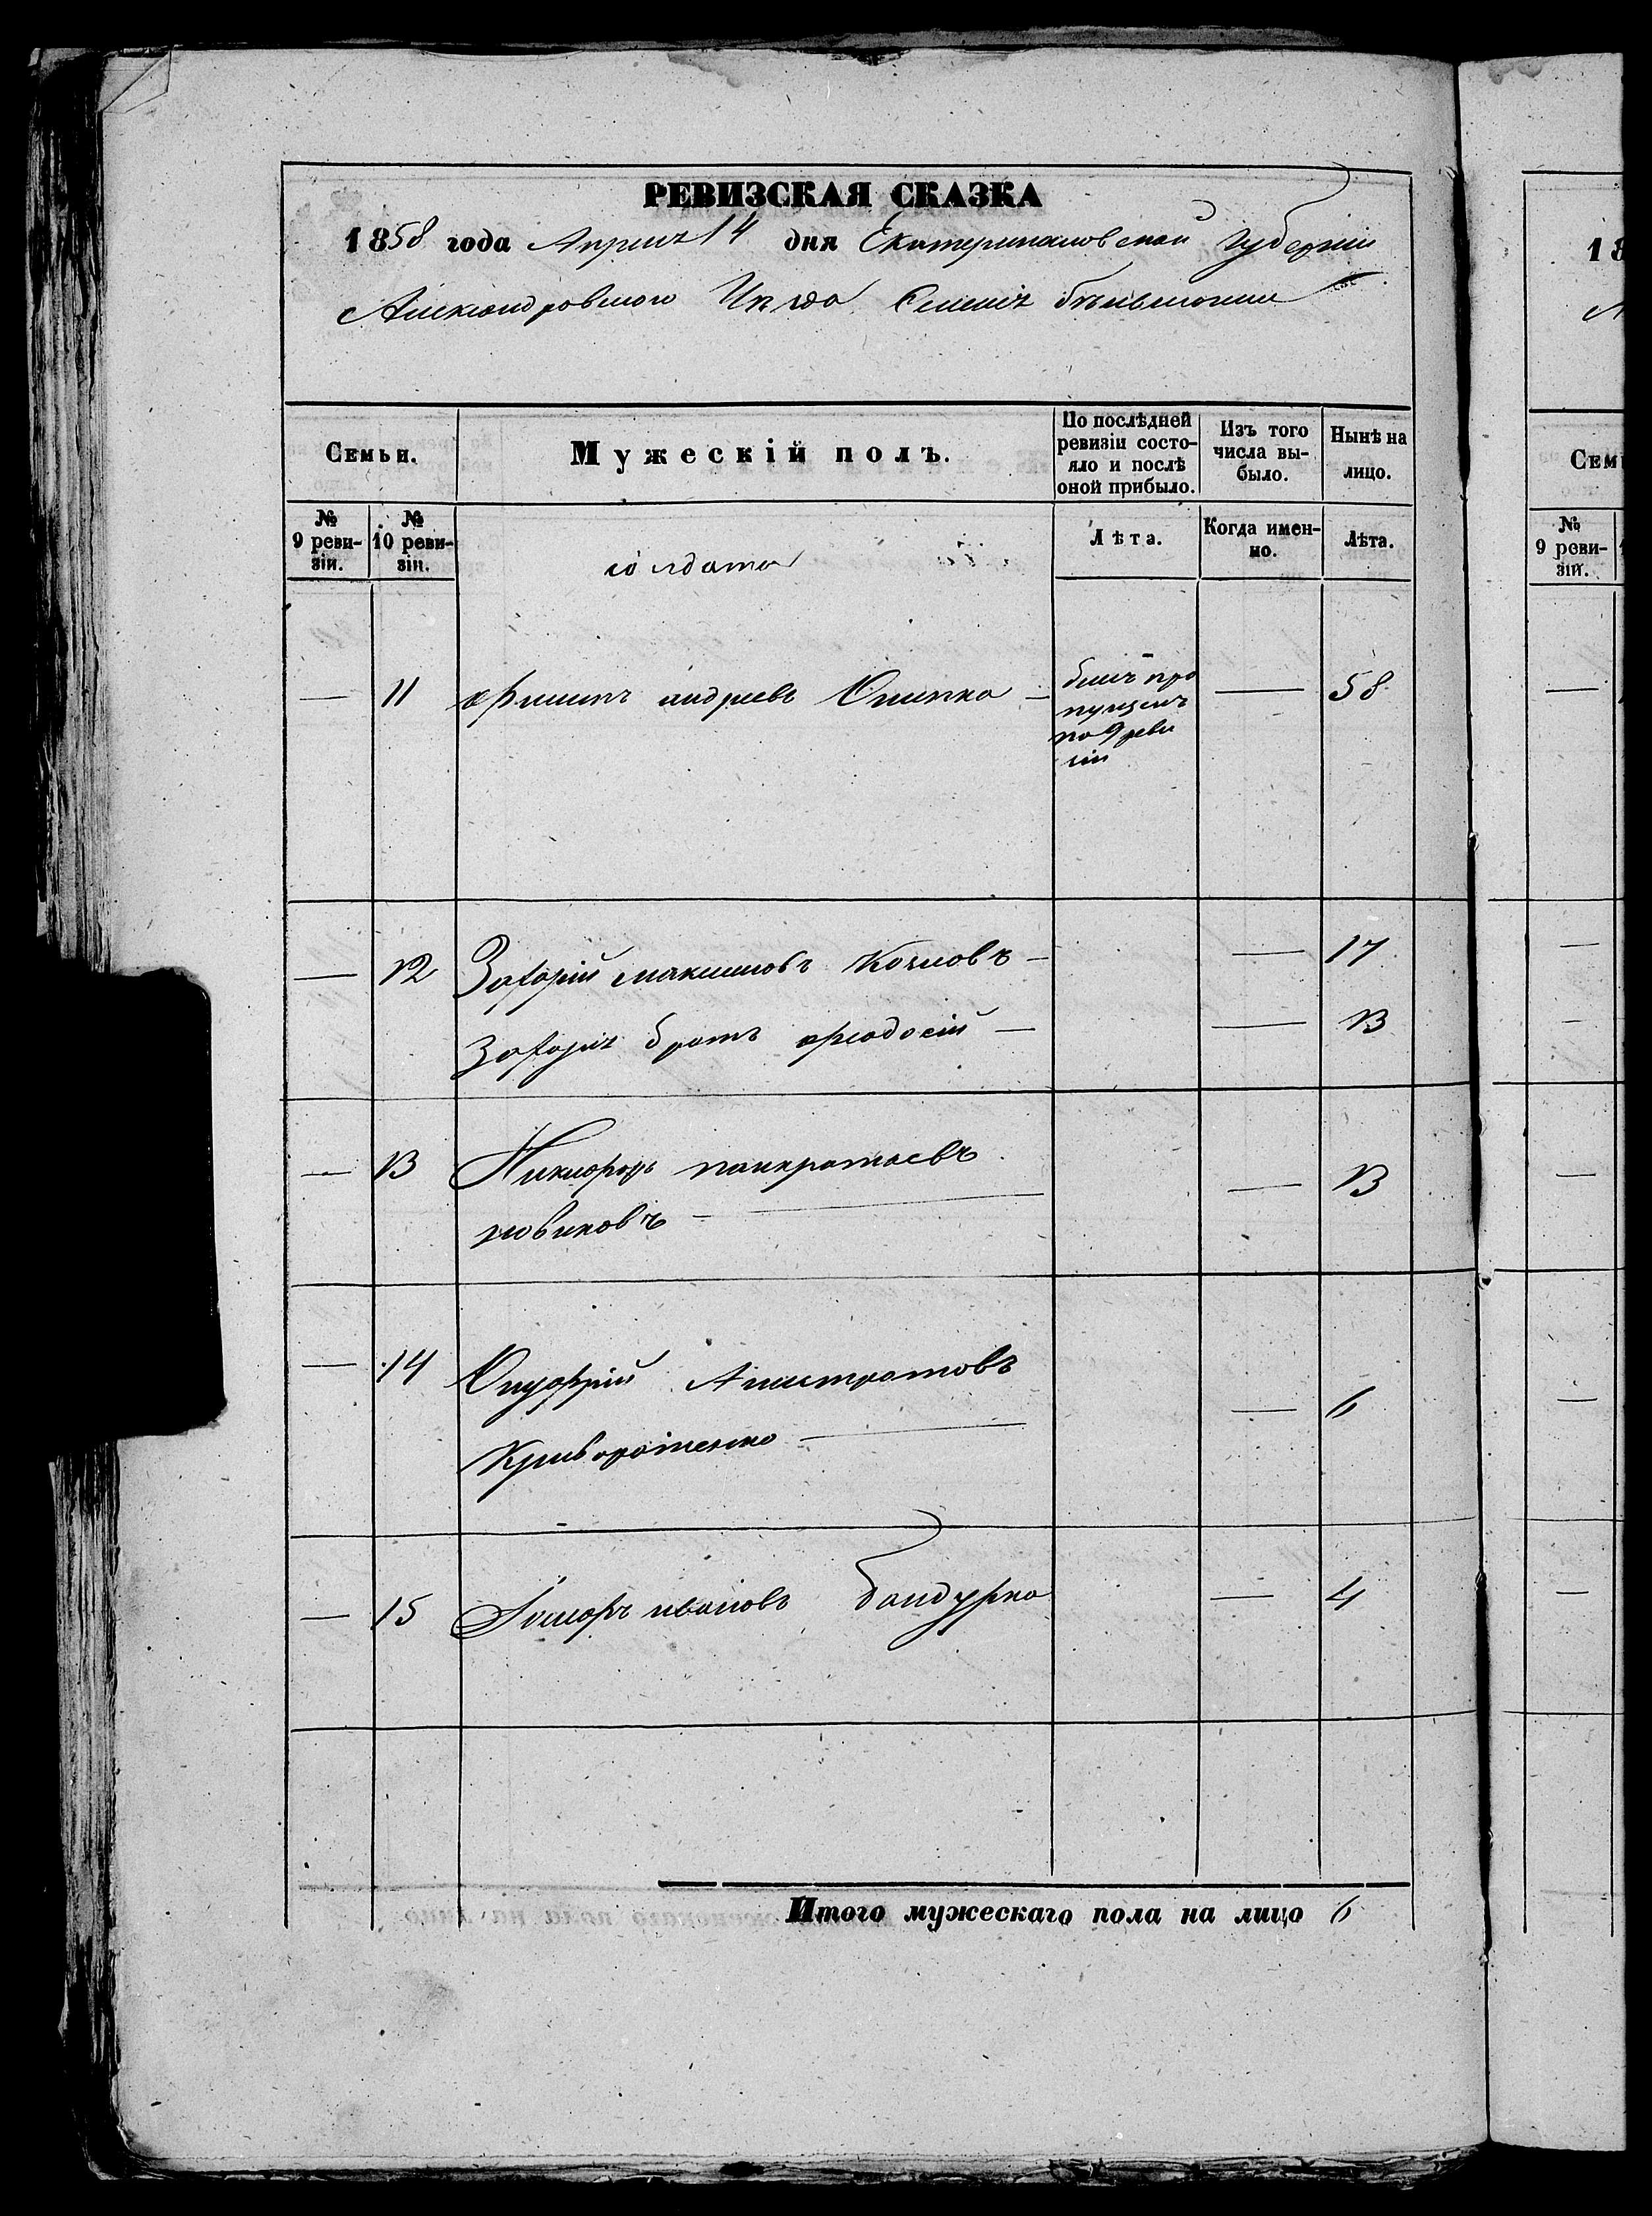 РЕВИЗСКАЯ СКАЗКА
1858 года Апреля 14 дня Екатеринославской губерніи
Александровского Уѣзда Селенія
Семьи.
Мужескій полъ.
По послѣдней ревизіи состо-
яло и послѣ
оной прибыло.
Изъ того
числа вы-
было.
Нынѣ на
лицо.
№
9 реви-
зіи.
№
10 реви-
зіи.
солдата
Лѣта.
Когда имен-
но.
Лѣта.
— 11 Филипъ андреевъ — былъ про
пущенъ
по 9 реви
зіи — 58
— 12 Захарій максимовъ Козловъ — — 17
Захарія братъ феодосій — — 13
— 13 Никифоръ панкратьевъ — 13
новиковъ —
— 14 Онуфрій Алистратовъ — 6
Криворотенко —
— 15 ивановъ бандурка — 4
Итого мужескаго пола на лицо 6
18
Сем
№
9 реви-
зій.